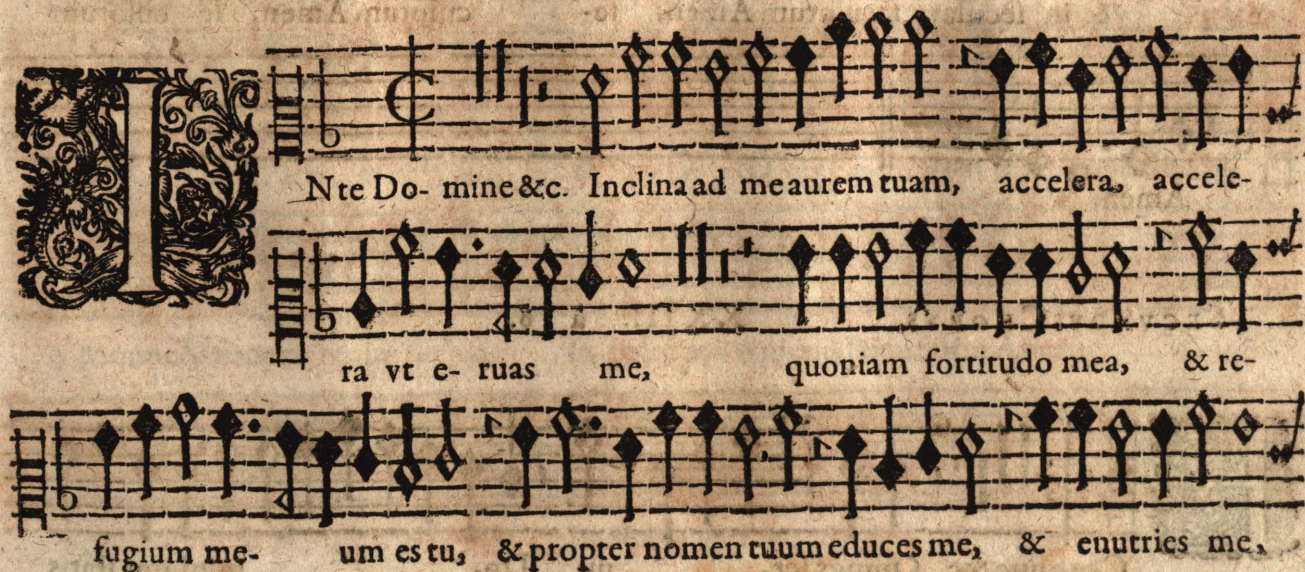 INte Do- mine &c. Inclina ad me aurem tuam, accelera, accele-
ra vt e- ruas me, quoniam fortitudo mea, & re-
fugium me- um es tu, & propter nomen tuum educes me, & enutries me,